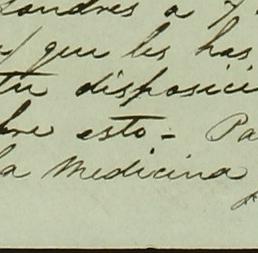 Londres a 7
y que les has
tu disposici
bre esto = Pa
la medicina